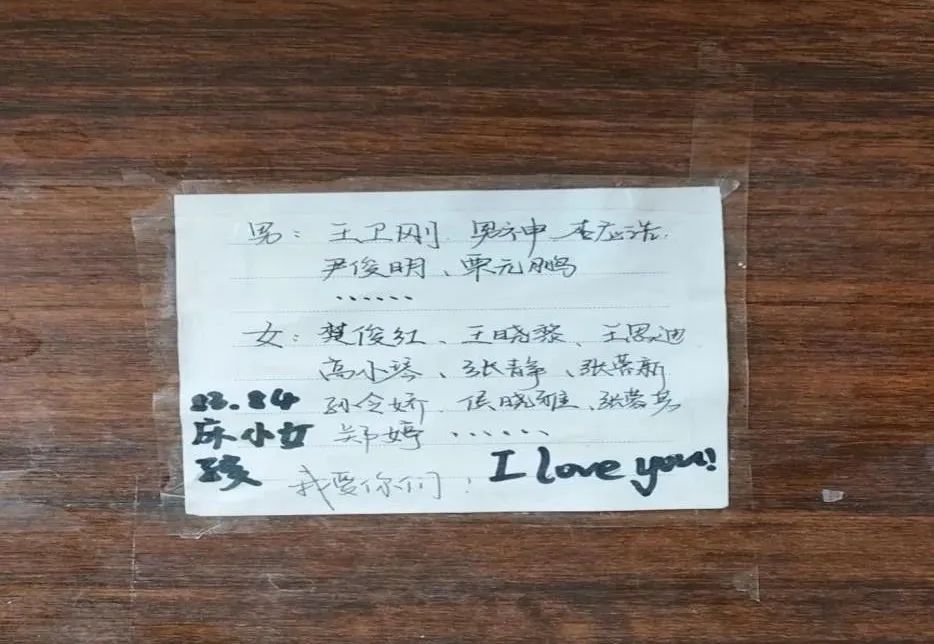 男：王卫刚、男神、李应浩、
尹俊明、栗元鹏
……
女：樊俊红、王晓黎、王思迪
高小琴、张静、张蓉新
孙令娇、侯晓雅、张蓉
郑婷……
我爱你们！
83.84
床小女
孩
I love you!